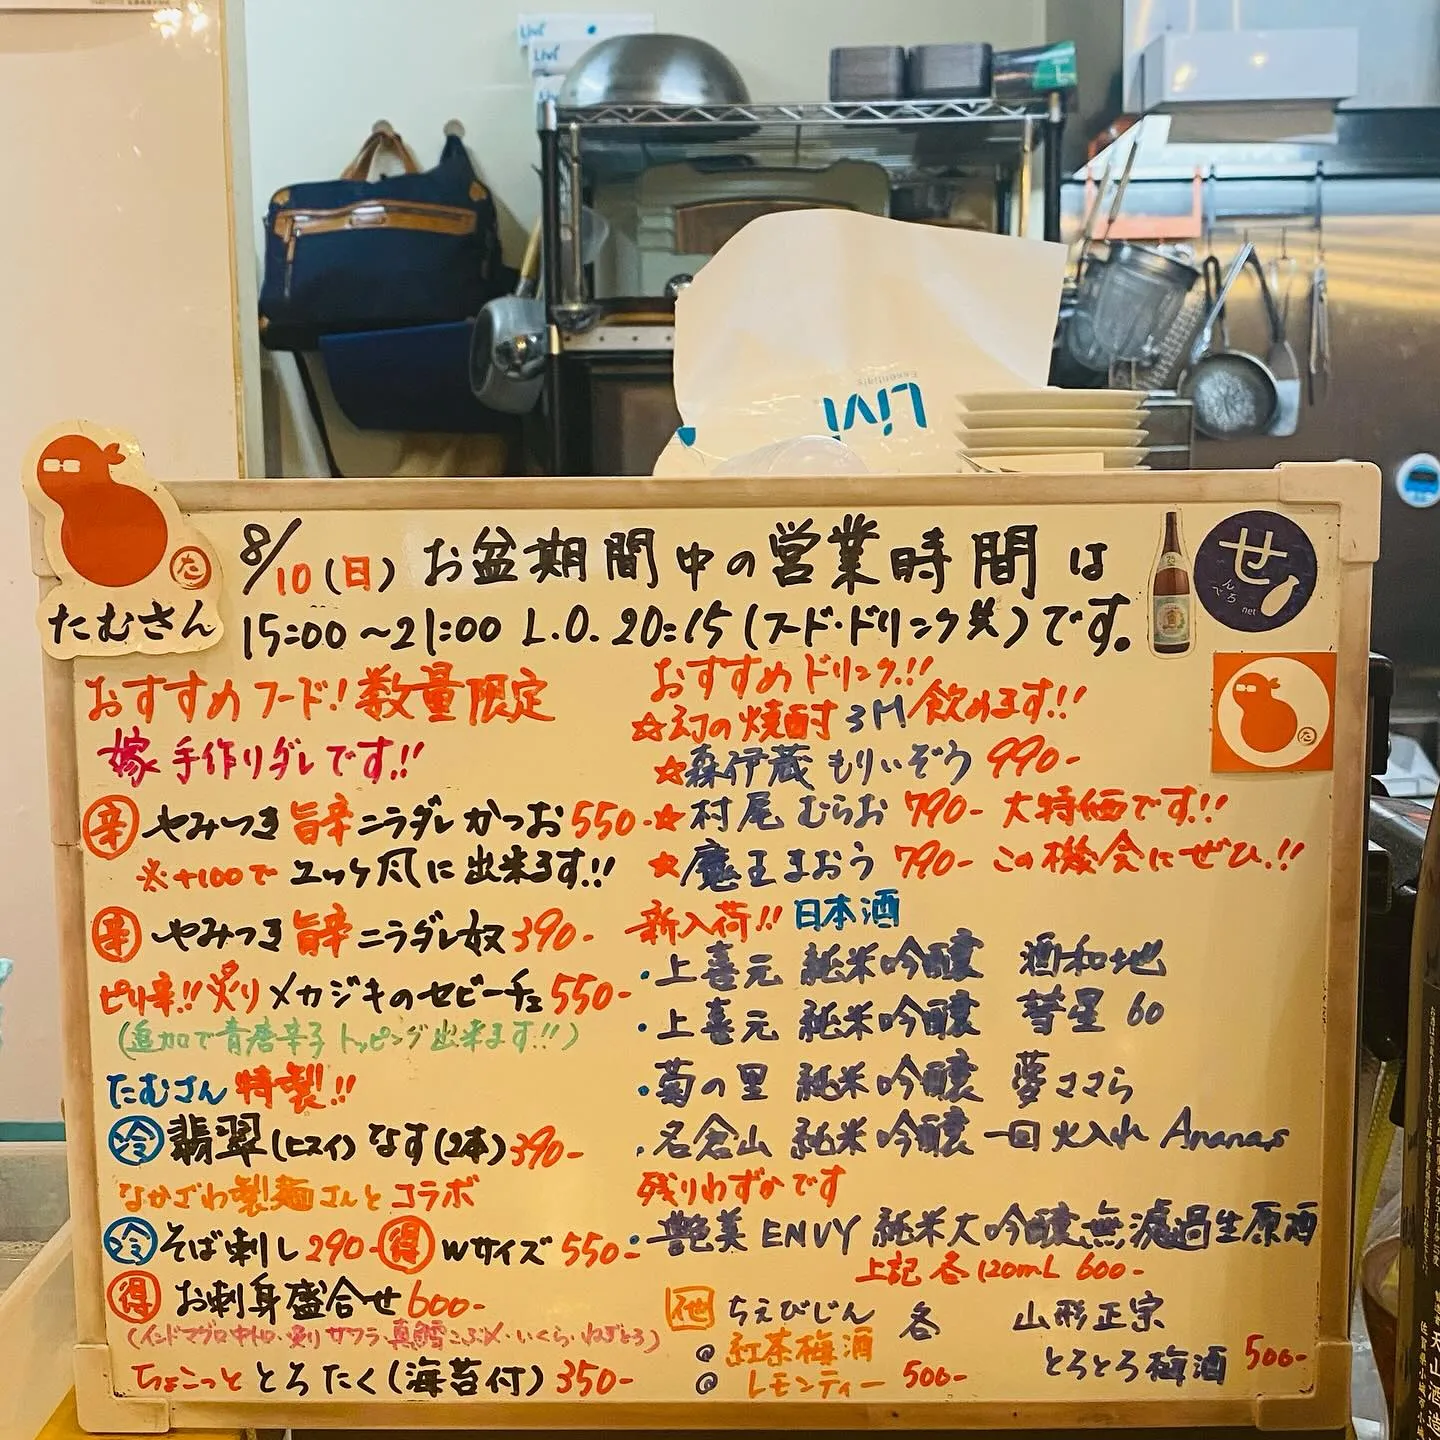 Livi
Livi
Livi
Essentials
たむさん
8/10(日) お盆期間中の営業時間は
15:00~21:00 L.O. 20:15(フード・ドリンク共)です。
せ
んべろ
net
おすすめフード!数量限定
嫁手作りダレです!!
辛 やみつき旨辛ニラダレかつお550-
※+100でユッケ風に出来ます!!
辛 やみつき旨辛ニラダレ奴390-
ピリ辛!!炙りメカジキのセビーチェ550-
(追加で青唐辛子トッピング出来ます!!)
たむさん特製!!
冷 翡翠(ヒスイ)なす(2本)390-
なかざわ製麺さんとコラボ
冷 そば刺し290- 得 Wサイズ550-
得 お刺身盛合せ600-
(インドマグロ中トロ・炙りサワラ・真鯛こぶ〆・いくら・ねぎとろ)
ちょこっととろたく(海苔付)350-
おすすめドリンク!!
☆幻の焼酎3M飲めます!!
☆森伊蔵 もりいぞう 990-
☆村尾 むらお 790- 大特価です!!
★魔王まおう 790- この機会にぜひ!!
新入荷!!日本酒
・上喜元 純米吟醸 酒和地
・上喜元 純米吟醸 彗星60
・菊の里 純米吟醸 夢ささら
・名倉山 純米吟醸 一回火入れ Ananas
残りわずかです
・艶美 ENVY 純米大吟醸無濾過生原酒
上記各120mL 600-
他 ちえびじん 各 山形正宗
@ 紅茶梅酒 とろとろ梅酒 500-
@ レモンティー 500-